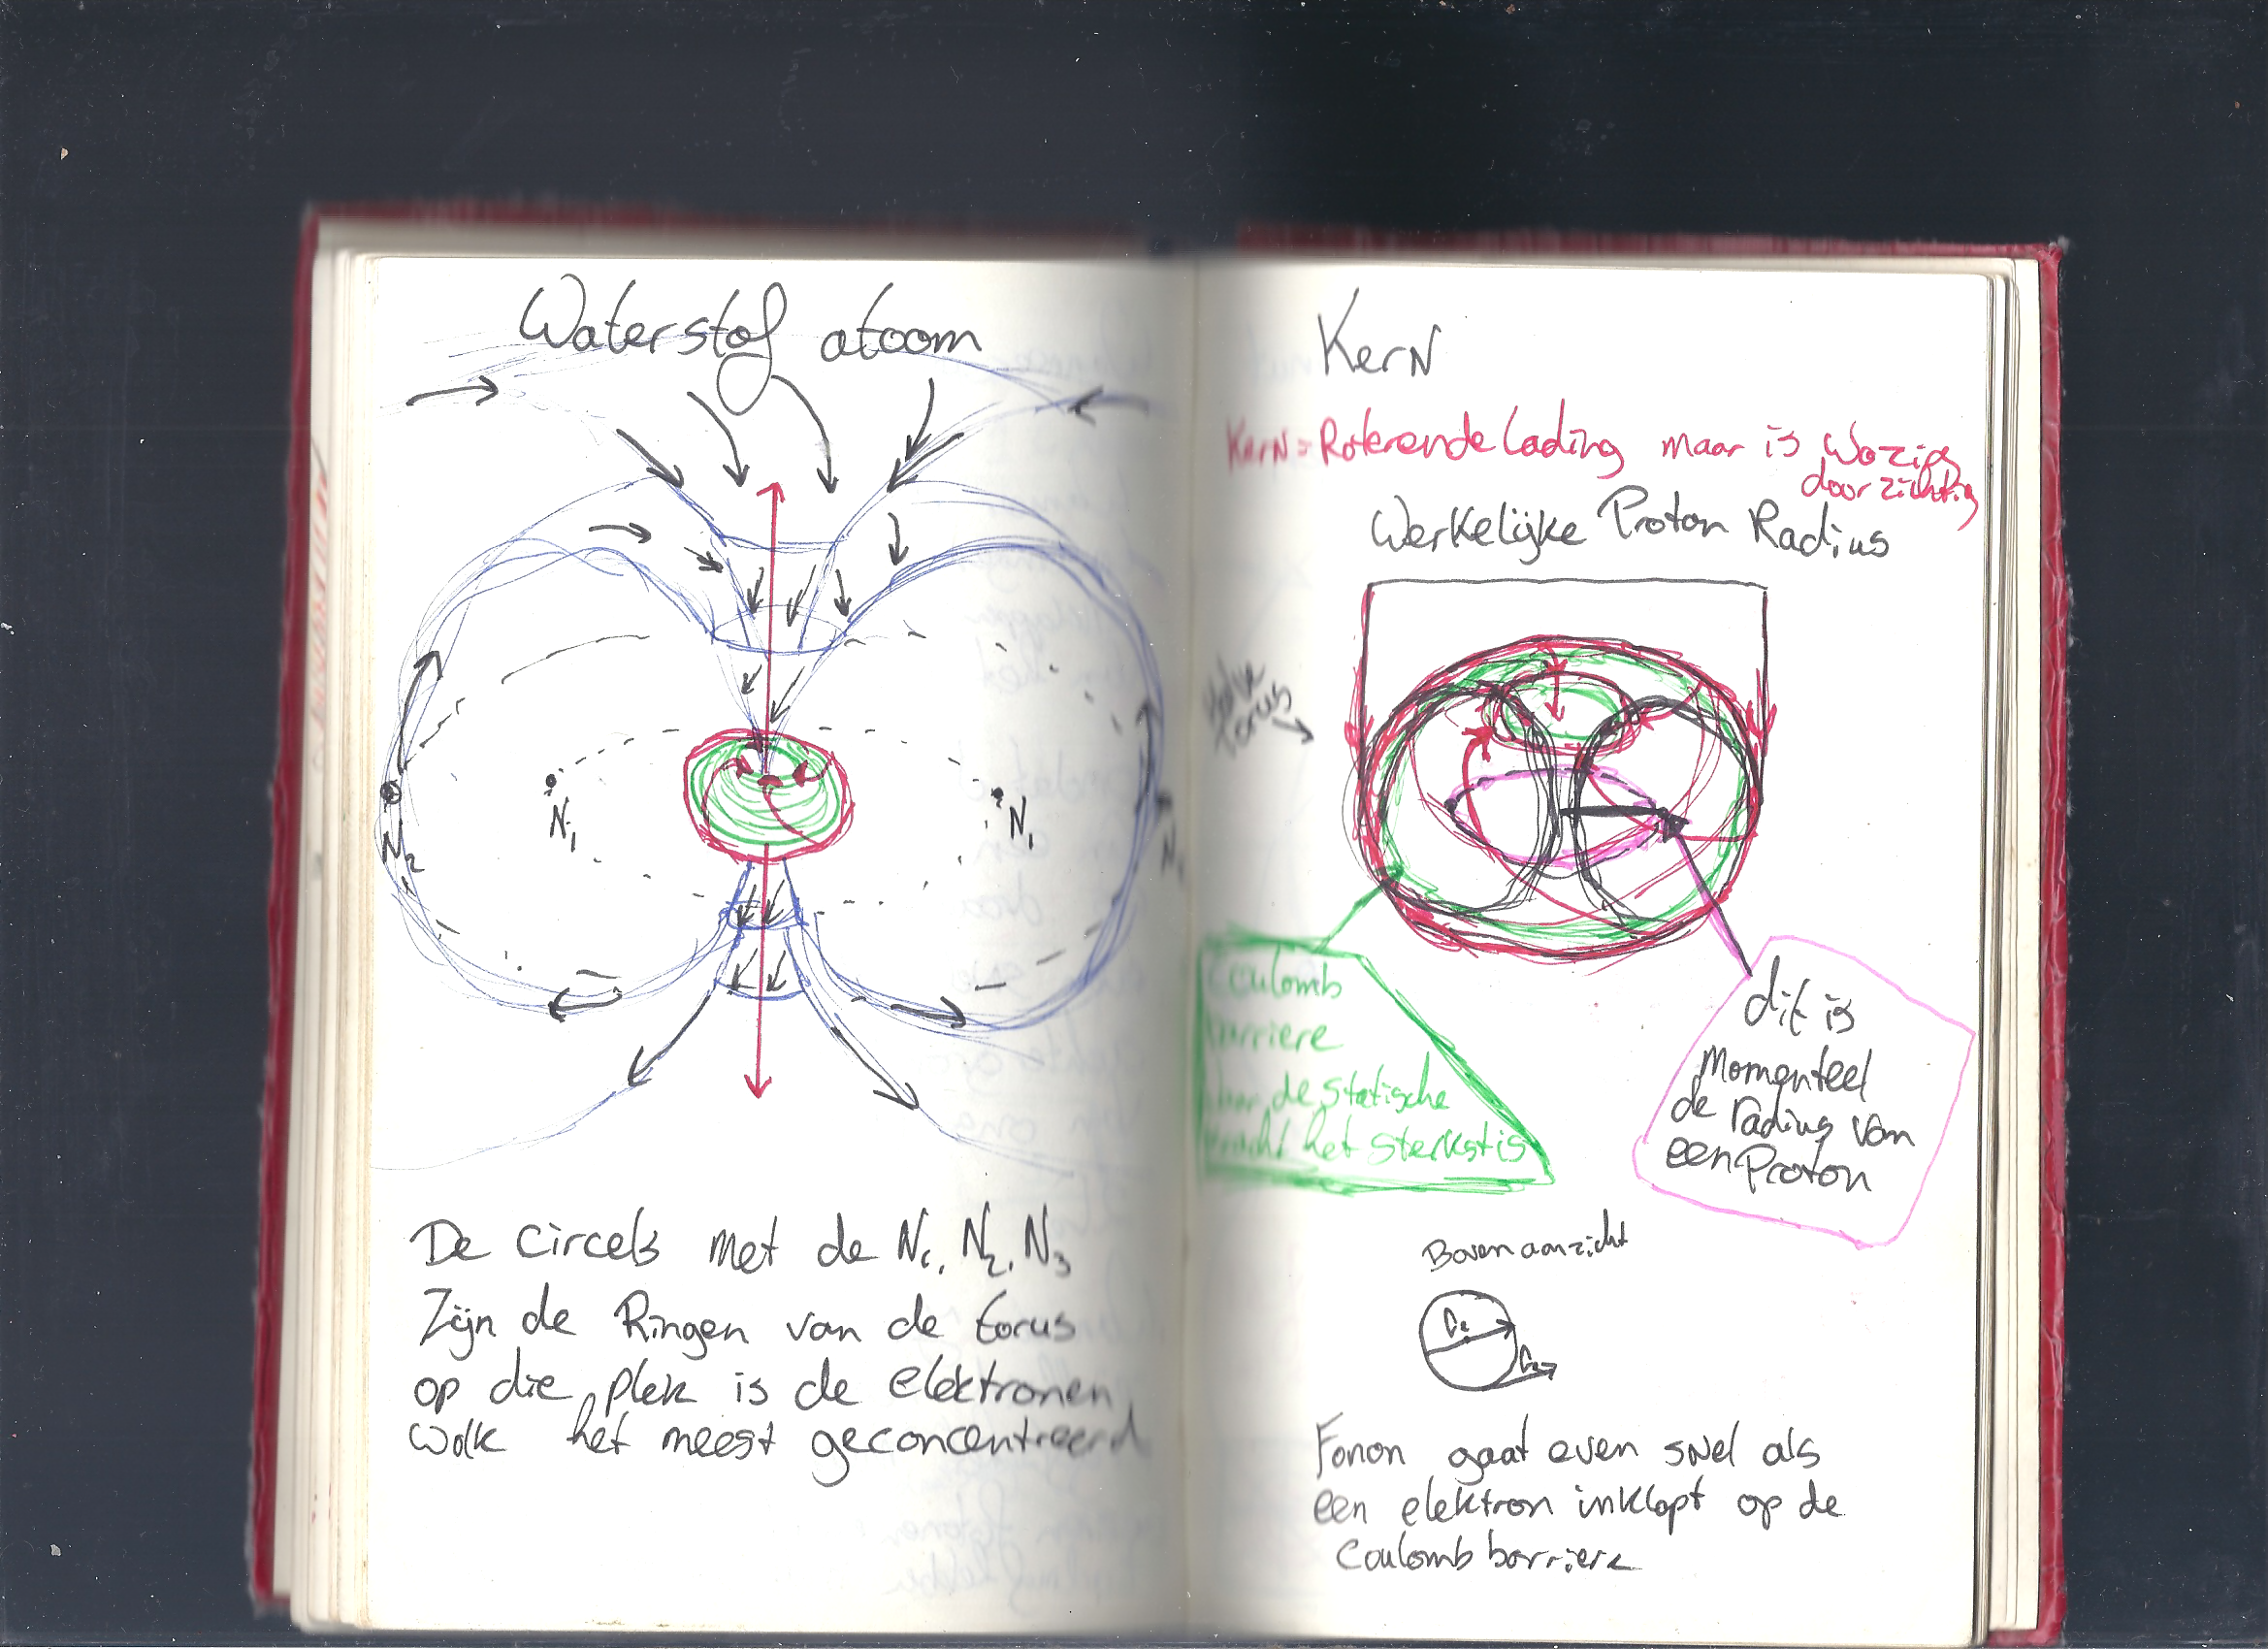 Waterstof atoom
N2
N1
N1
De circels met de N1, N2, N3
Zijn de Ringen van de torus
op die plek is de elektronen
wolk het meest geconcentreerd
Kern
Kern = Roterende lading maar is
doorzichtig
Werkelijke Proton Radius
torus
Coulomb
barriere
de statische
kracht het sterkst is
dit is
Momenteel
de radius van
een Proton
Bovenaanzicht
Fonon gaat even snel als
een elektron inklapt op de
Coulomb barriere